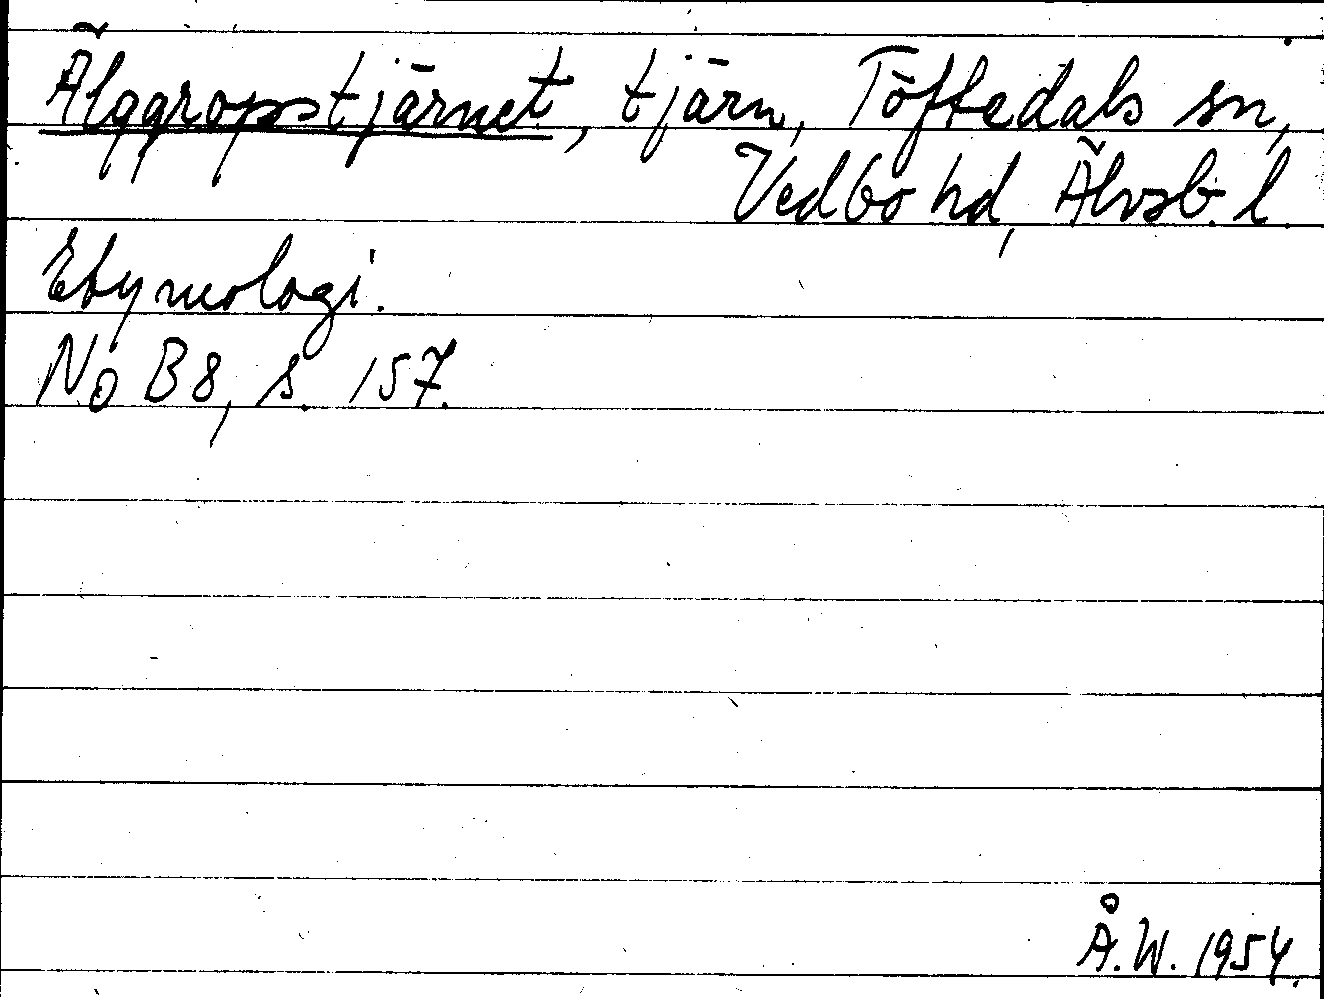 Älggropstjärnet, tjärn, Töftedals sn,
Vedbo hd, Älvsb. l.
Etymologi.
NoB 8, s. 157.
Å.W. 1954.